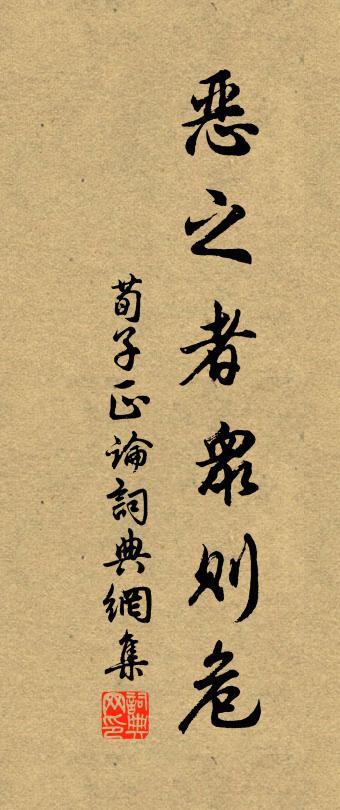 惡之者衆則危
荀子正論詞典網集
詞典
网印